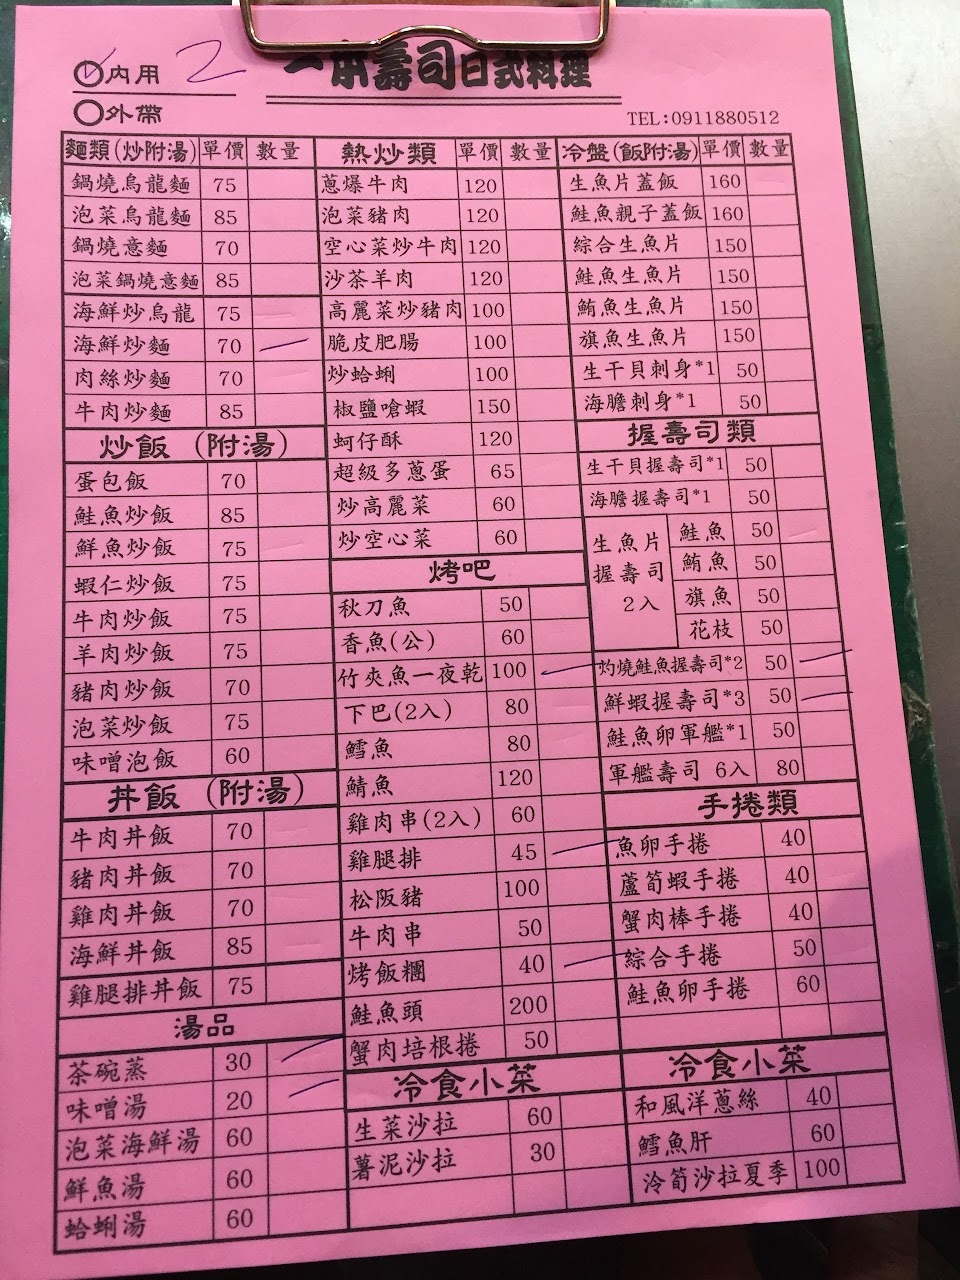 一本壽司日式料理
內用 2
外帶
TEL:0911880512
麵類(炒附湯) 單價 數量
鍋燒烏龍麵 75
泡菜烏龍麵 85
鍋燒意麵 70
泡菜鍋燒意麵 85
海鮮炒烏龍 75
海鮮炒麵 70
肉絲炒麵 70
牛肉炒麵 85
炒飯(附湯)
蛋包飯 70
鮭魚炒飯 85
鮮魚炒飯 75
蝦仁炒飯 75
牛肉炒飯 75
羊肉炒飯 75
豬肉炒飯 70
泡菜炒飯 75
味噌泡飯 60
丼飯(附湯)
牛肉丼飯 70
豬肉丼飯 70
雞肉丼飯 70
海鮮丼飯 85
雞腿排丼飯 75
湯品
茶碗蒸 30
味噌湯 20
泡菜海鮮湯 60
鮮魚湯 60
蛤蜊湯 60
熱炒類 單價 數量
蔥爆牛肉 120
泡菜豬肉 120
空心菜炒牛肉 120
沙茶羊肉 120
高麗菜炒豬肉 100
脆皮肥腸 100
炒蛤蜊 100
椒鹽嗆蝦 150
蚵仔酥 120
超級多蔥蛋 65
炒高麗菜 60
炒空心菜 60
烤吧
秋刀魚 50
香魚(公) 60
竹夾魚一夜乾 100
下巴(2入) 80
鱈魚 80
鯖魚 120
雞肉串(2入) 60
雞腿排 45
松阪豬 100
牛肉串 50
烤飯糰 40
鮭魚頭 200
蟹肉培根捲 50
冷食小菜
生菜沙拉 60
薯泥沙拉 30
冷盤(飯附湯) 單價 數量
生魚片蓋飯 160
鮭魚親子蓋飯 160
綜合生魚片 150
鮭魚生魚片 150
鮪魚生魚片 150
旗魚生魚片 150
生干貝刺身*1 50
海膽刺身*1 50
握壽司類
生干貝握壽司*1 50
海膽握壽司*1 50
生魚片握壽司2入
鮭魚 50
鮪魚 50
旗魚 50
花枝 50
灼燒鮭魚握壽司*2 50
鮮蝦握壽司*3 50
鮭魚卵軍艦*1 50
軍艦壽司 6入 80
手捲類
魚卵手捲 40
蘆筍蝦手捲 40
蟹肉棒手捲 40
綜合手捲 50
鮭魚卵手捲 60
冷食小菜
和風洋蔥絲 40
鱈魚肝 60
冷筍沙拉夏季 100